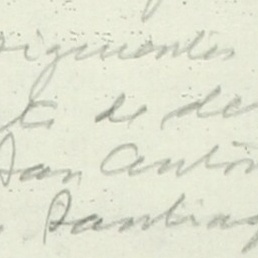 siguientes
te de de
San Antón
Santiag